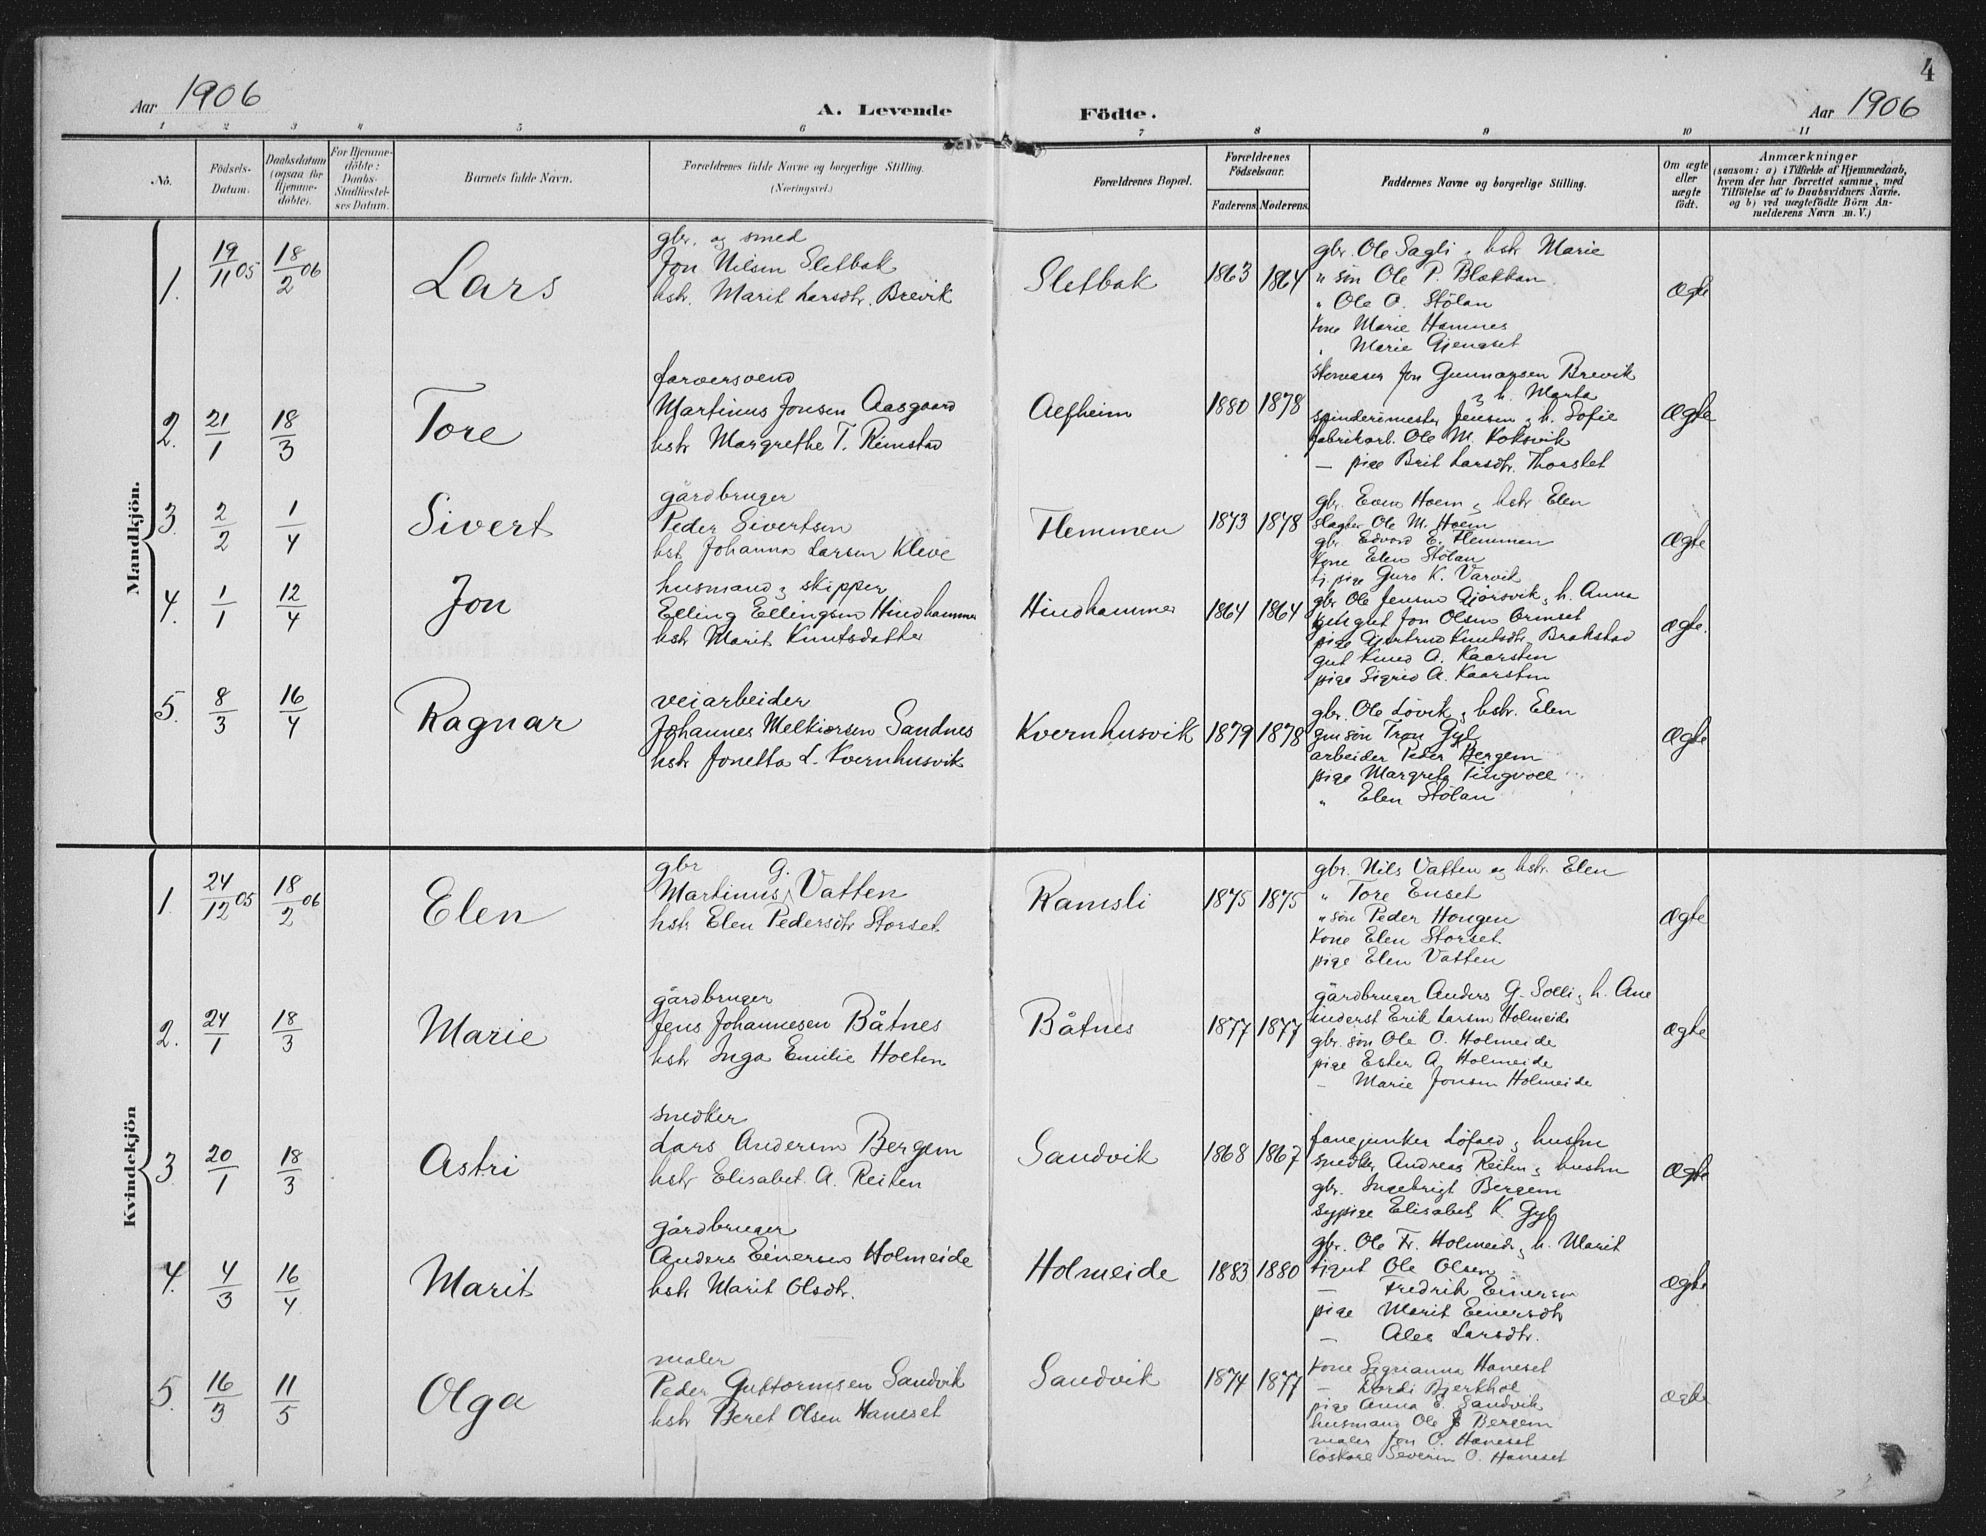 4
Aar 1906
A. Levende Födte.
Aar 1906
1 2 3 4 5 6 7 8 9 10 11
No.
Födsels-Datum.
Daabsdatum (ogsaa for Hjemme-döbte).
For Hjemme-döbte: Daabs-Stadfæstel-ses Datum.
Barnets fulde Navn.
Forældrenes fulde Navne og borgerlige Stilling.
(Næringsvei.)
Forældrenes Bopæl.
Forældrenes Födselsaar.
Faderens. Moderens.
Faddernes Navne og borgerlige Stilling.
Om ægte eller uægte födt.
Anmærkninger
(saasom: a) i Tilfælde af Hjemmedaab,
hvem der har forrettet samme, med
Tilföielse af to Daabsvidners Navne.
og b) ved uægtefödte Börn An-
melderens Navn m. V.)
Mandkjön.
1. 19/11 05 18/2 06 Lars
gbr. og smed
Jon Nilsen Sletbak
hstr. Marit Larsdtr. Brevik
Sletbak 1863 1864
gbr. Ole Sagli, hstr Marie
" søn Ole P. Blakkan
" Ole O. Stølan
kone Marie Hamnes
" Marie Gjengset
ægte
2. 21/1 18/3 Tore
farversvend
Martinus Jonsen Aasgaard
hstr Margrethe T. Rimstad
Alfheim 1880 1878
Jon Gunnarsen Brevik
h. Marta
spinderimester Jensen, h. Sofie
fabrikarb. Ole M. Koksvik
— pige Brit Larsdtr. Thorslet
ægte
3. 2/2 1/4 Sivert
gårdbruger
Peder Sivertsen
hst Johanna Larsen Kleve
Flemmen 1873 1878
gbr. Even Hoem, hstr Elen
slagter Ole M. Hoem
gbr Edvard E. Flemmen
kone Elen Stølan
tj.pige Guro K. Varvik
ægte
4. 1/1 12/4 Jon
husmand & skipper
Elling Ellingsen Hindhammer
hstr Marit Knutsdatter
Hindhammer 1864 1864
gbr Ole Jensen Gjørsvik, h. Anna
gut Jon Olsen Ormset
pige Gjertrud Knutsdtr. Brakstad
gut Knud A. Kaarsten
pige Sigrid A. Kaarsten
ægte.
5. 8/3 16/4 Ragnar
veiarbeider
Johannes Melkiorsen Sandnes
hstr Jonetta L. Kvernhusvik
Kvernhusvik 1879 1878
gbr. Ole Løvik, hstr. Elen
søn Tron Gyl
arbeider Peder Bergem
pige Margrete Tingvoll
" Elen Stølan
ægte
Kvindekjön
1. 24/12 05 18/2 06 Elen
gbr G.
Martinus Vatten
hstr Elen Pedersdtr Storset
Ramsli 1875 1875
gbr. Nils Vatten og hstr. Elen
" Tore Enset
" søn Peder Hongen
kone Elen Storset
pige Elen Vatten
ægte
2. 24/1 18/3 Marie
gårdbruger
Jens Johannesen Båtnes
hstr Inga Emilie Holten
Båtnes 1877 1877
gårdbruger Anders G. Solli, h. Ane
inderst Erik Larsen Holmeide
gbr. søn Ole O. Holmeide
pige Ester A. Holmeide
— Marie Jonsen Holmeide
ægte
3. 20/1 18/3 Astri
snedker
Lars Andersen Bergem
hstr Elisabet A. Reiten
Sandvik 1868 1867
fanejunker Løfald, hustru
snedker Andreas Reiten, hustru
gbr. Ingebrigt Bergem
sypige Elisabet K. Gyl
ægte
4. 4/3 16/4 Marit
gårdbruger
Anders Einersen Holmeide
hstr Marit Olsdtr.
Holmeide 1883 1880
gbr. Ole Fr. Holmeide, h. Marit
tjgut Ole Olsen
— Fredrik Einersen
pige Marit Einersdtr
— Ales Larsdtr.
ægte
5. 16/3 11/5 Olga
maler
Peder Guttormsen Sandvik
hstr Beret Olsen Haneset
Sandvik 1874 1877
kone Sigrianna Haneset
— Dordi Bjerkhol
pige Anna E. Sandvik
husmand Ole J. Bergem
maler Jon O. Haneset
løskarl Severin O. Haneset
ægte